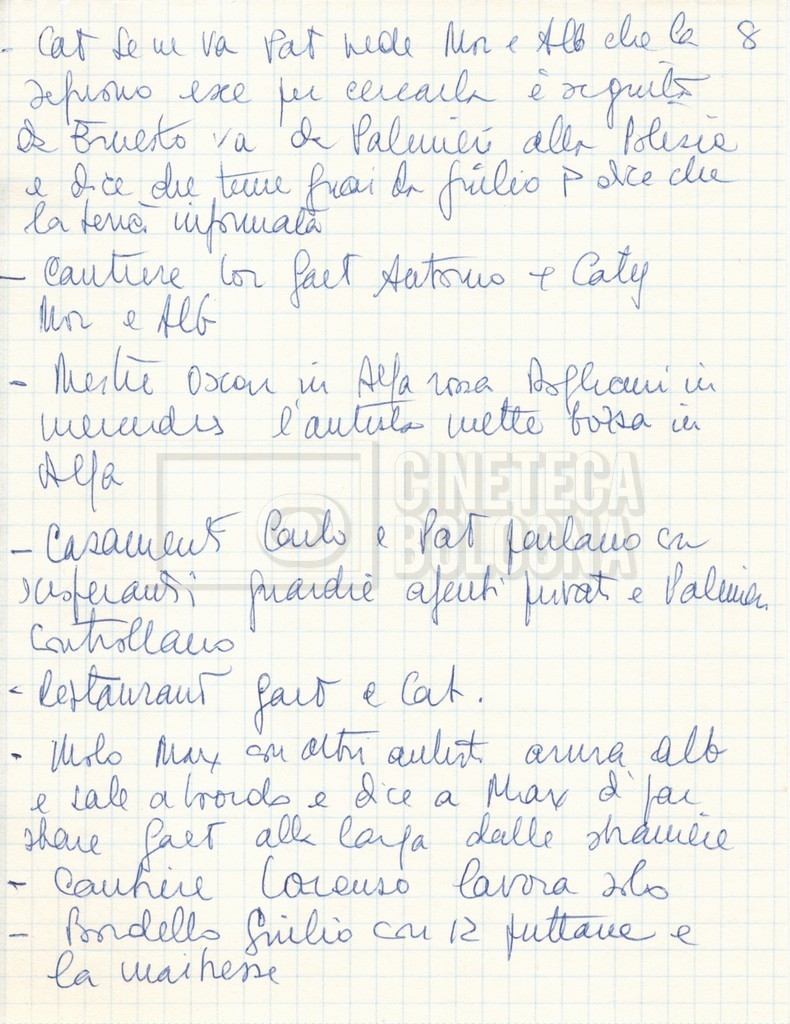 - Cat se ne va Pat vede Mor e Alb che la 8
seguono esce per cercarla è seguita
da Ernesto va da Palmieri alla Polizia
e dice che teme guai da Giulio P dice che
la terrà informata
- Cantiere Lor Gaet Antonio e Caty
Mor e Alb
- Mestre Oscar in Alfa rossa Dogliani in
mercedes l'autista mette borsa in
Alfa
- Casamenti Carlo e Pat parlano con
guardie agenti privati e Palmieri
controllano
- Restaurant Gaet e Cat.
- Molo Max con altri autisti arriva Alb
e sale a bordo e dice a Max di far
stare Gaet alla larga dalle straniere
- Cantiere Lorenzo lavora solo
- Bordello Giulio con 12 puttane e
la maitresse
CINETECA
BOLOGNA